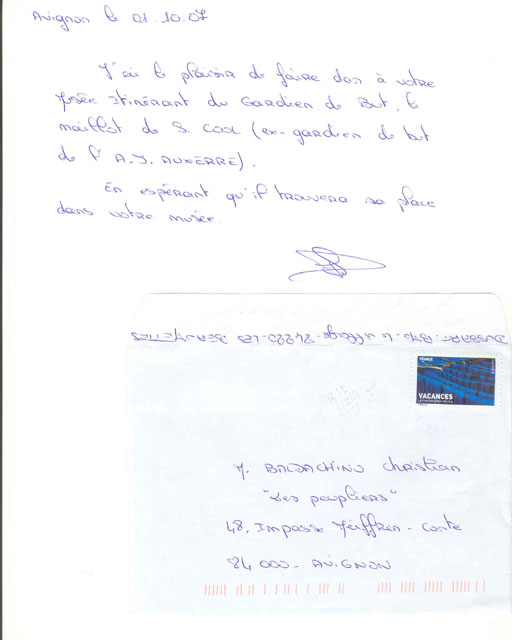 Avignon le 01.10.07
J'ai le plaisir de faire don à votre
Musée Itinérant du Gardien de But, le
maillot de S. Cool (ex-gardien de but
de l'A.J. AUXERRE).
En espérant qu'il trouvera sa place
dans votre musée.
FRANCE
VACANCES
M. BALDACHINO Christian
"Les peupliers"
48, Impasse - Conte
84 000 - AVIGNON